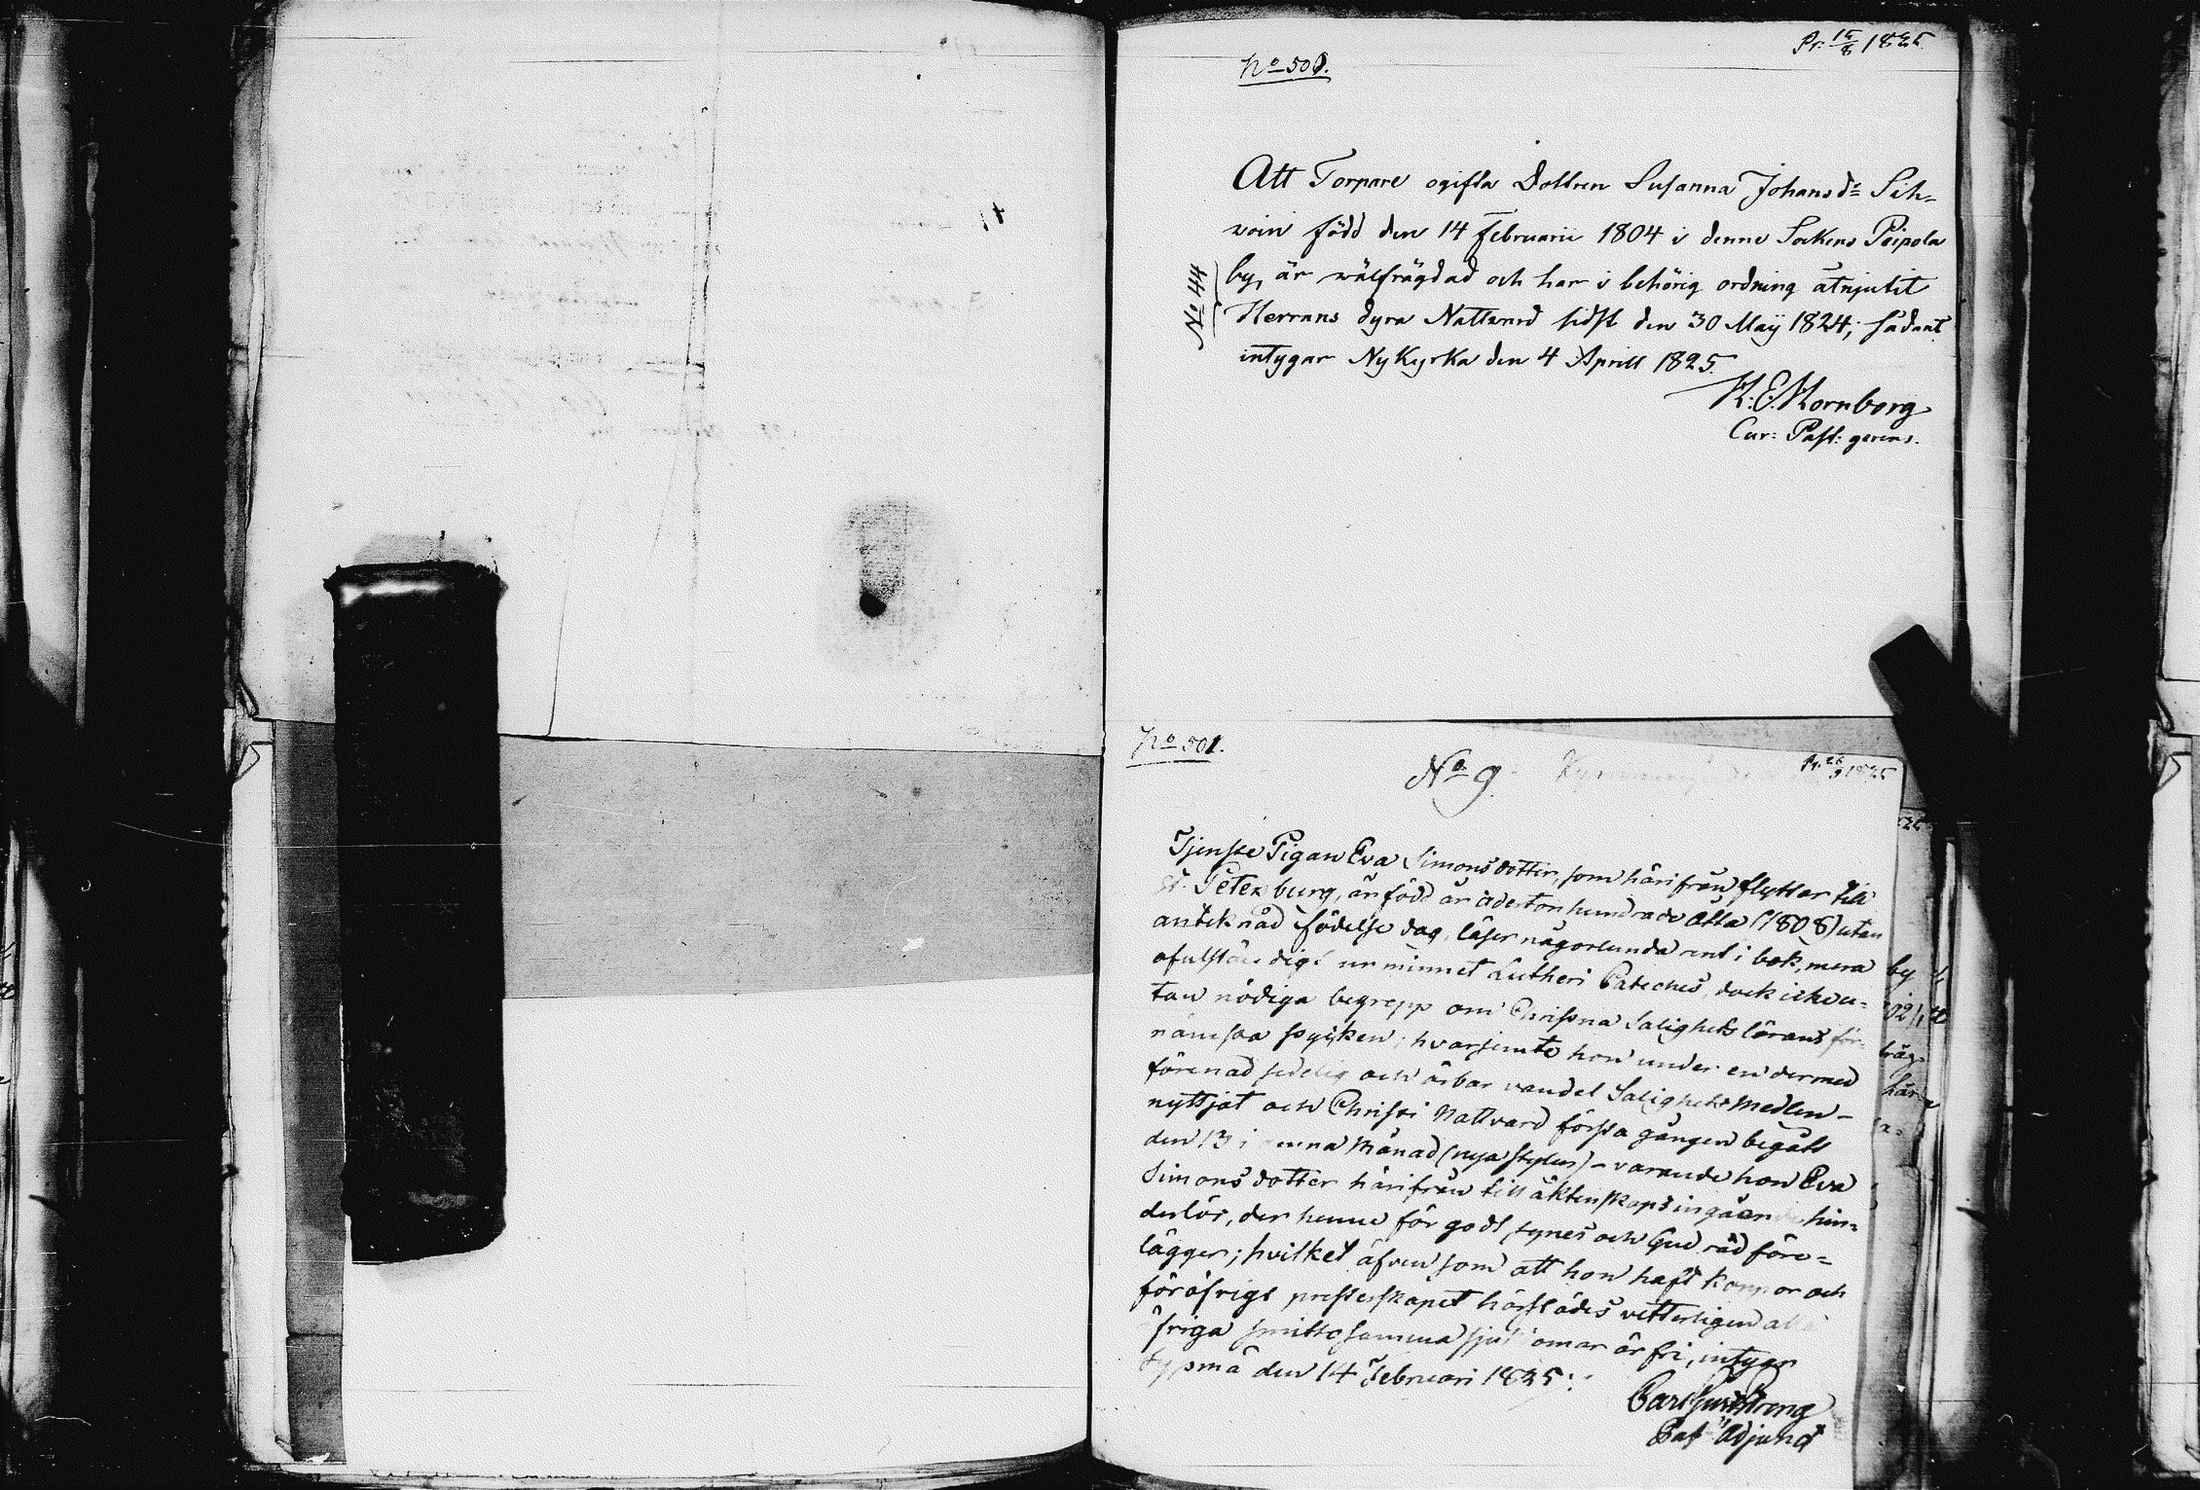 No 500.
Pr. 15/8 1825.
Att Torpare ogifta Dottren Susanna Johansd:r Sih-
voin född den 14 Februarii 1804 i denne Sockens Peipola
by, är wälfrägdad och har i behörig ordning åtnjutit
Herrans dyra Nattvard sidst den 30 Maij 1824; sådant
intygar NyKyrka den 4 Aprill 1825.
No 44
K: E: Kornborg
Cur: Past: gerens.
No 501.
No 9.
Pr. 26/9 1825
Tjenste Pigan Eva Simonsdotter, som härifrån flyttar till
St. Petersburg, är född år adertonhundrade åtta (1808) utan
antecknad födelse dag, läser någorlunda rent i bok, mera
ofullständigt ur minnet Lutheri Cateches, dock icke u-
tan nödiga begrepp om Christna Salighets lärans för-
nämsta stycken; hvarjemte hon under en dermed
förenad sedelig och ärbar vandel Salighets Medlen
nyttjat och Christi Nattvard första gången begått
den 13 i denna Månad (nya stylen) – varande hon Eva
Simonsdotter härifrån till äktenskaps ingående hin-
derlös, der henne för godt synes och Gud råd före-
lägger; hvilket äfven som att hon haft Koppor och
för öfrigt presterskapet härstädes vetterligen alla
öfriga smittosamma sjukdomar är fri, intygar
Sysmä den 14 Februari 1825:
Carl
Past. Adjunct
by